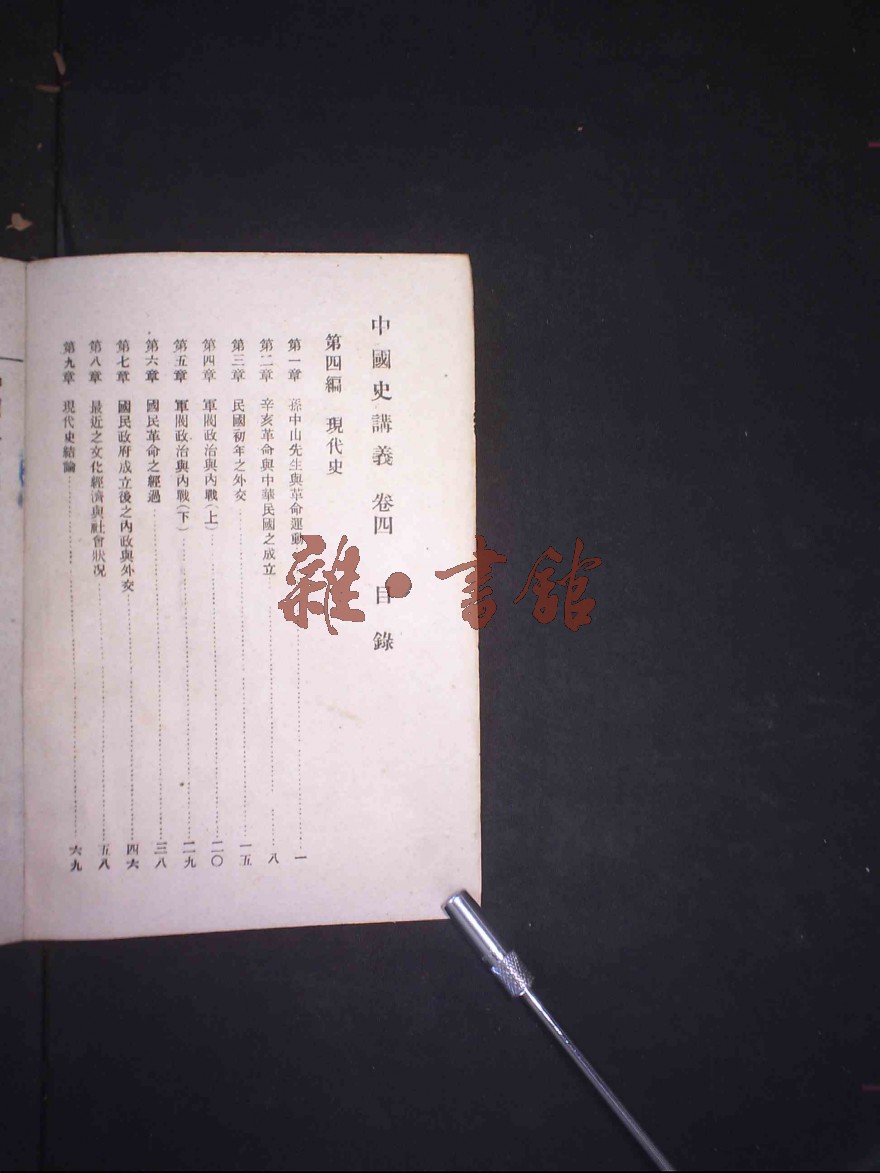 中國史講義 卷四 目錄
第四編 現代史
第一章 孫中山先生與革命運動……一
第二章 辛亥革命與中華民國之成立……八
第三章 民國初年之外交……一五
第四章 軍閥政治與內戰(上)……二〇
第五章 軍閥政治與內戰(下)……二九
第六章 國民革命之經過……三八
第七章 國民政府成立後之內政與外交……四六
第八章 最近之文化經濟與社會狀況……五八
第九章 現代史結論……六九
雜·書館